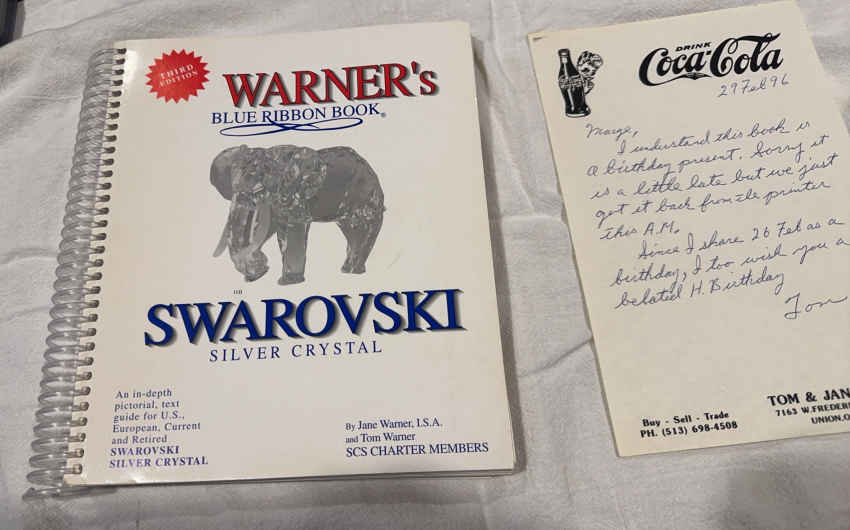 THIRD
EDITION
WARNER's
BLUE RIBBON BOOK®
SWAROVSKI
SILVER CRYSTAL
An in-depth
pictorial, text
guide for U.S.,
European, Current
and Retired
SWAROVSKI
SILVER CRYSTAL
By Jane Warner, I.S.A.
and Tom Warner
SCS CHARTER MEMBERS
DRINK
Coca-Cola
29 Feb 96
Marge,
I understand this book is
a birthday present. Sorry it
is a little late but we just
got it back from the printer
this A.M.
Since I share 26 Feb as a
birthday, I too wish you a
belated H. Birthday
Tom
Buy - Sell - Trade
PH. (513) 698-4508
TOM & JAN
7163 W. FREDER
UNION, O